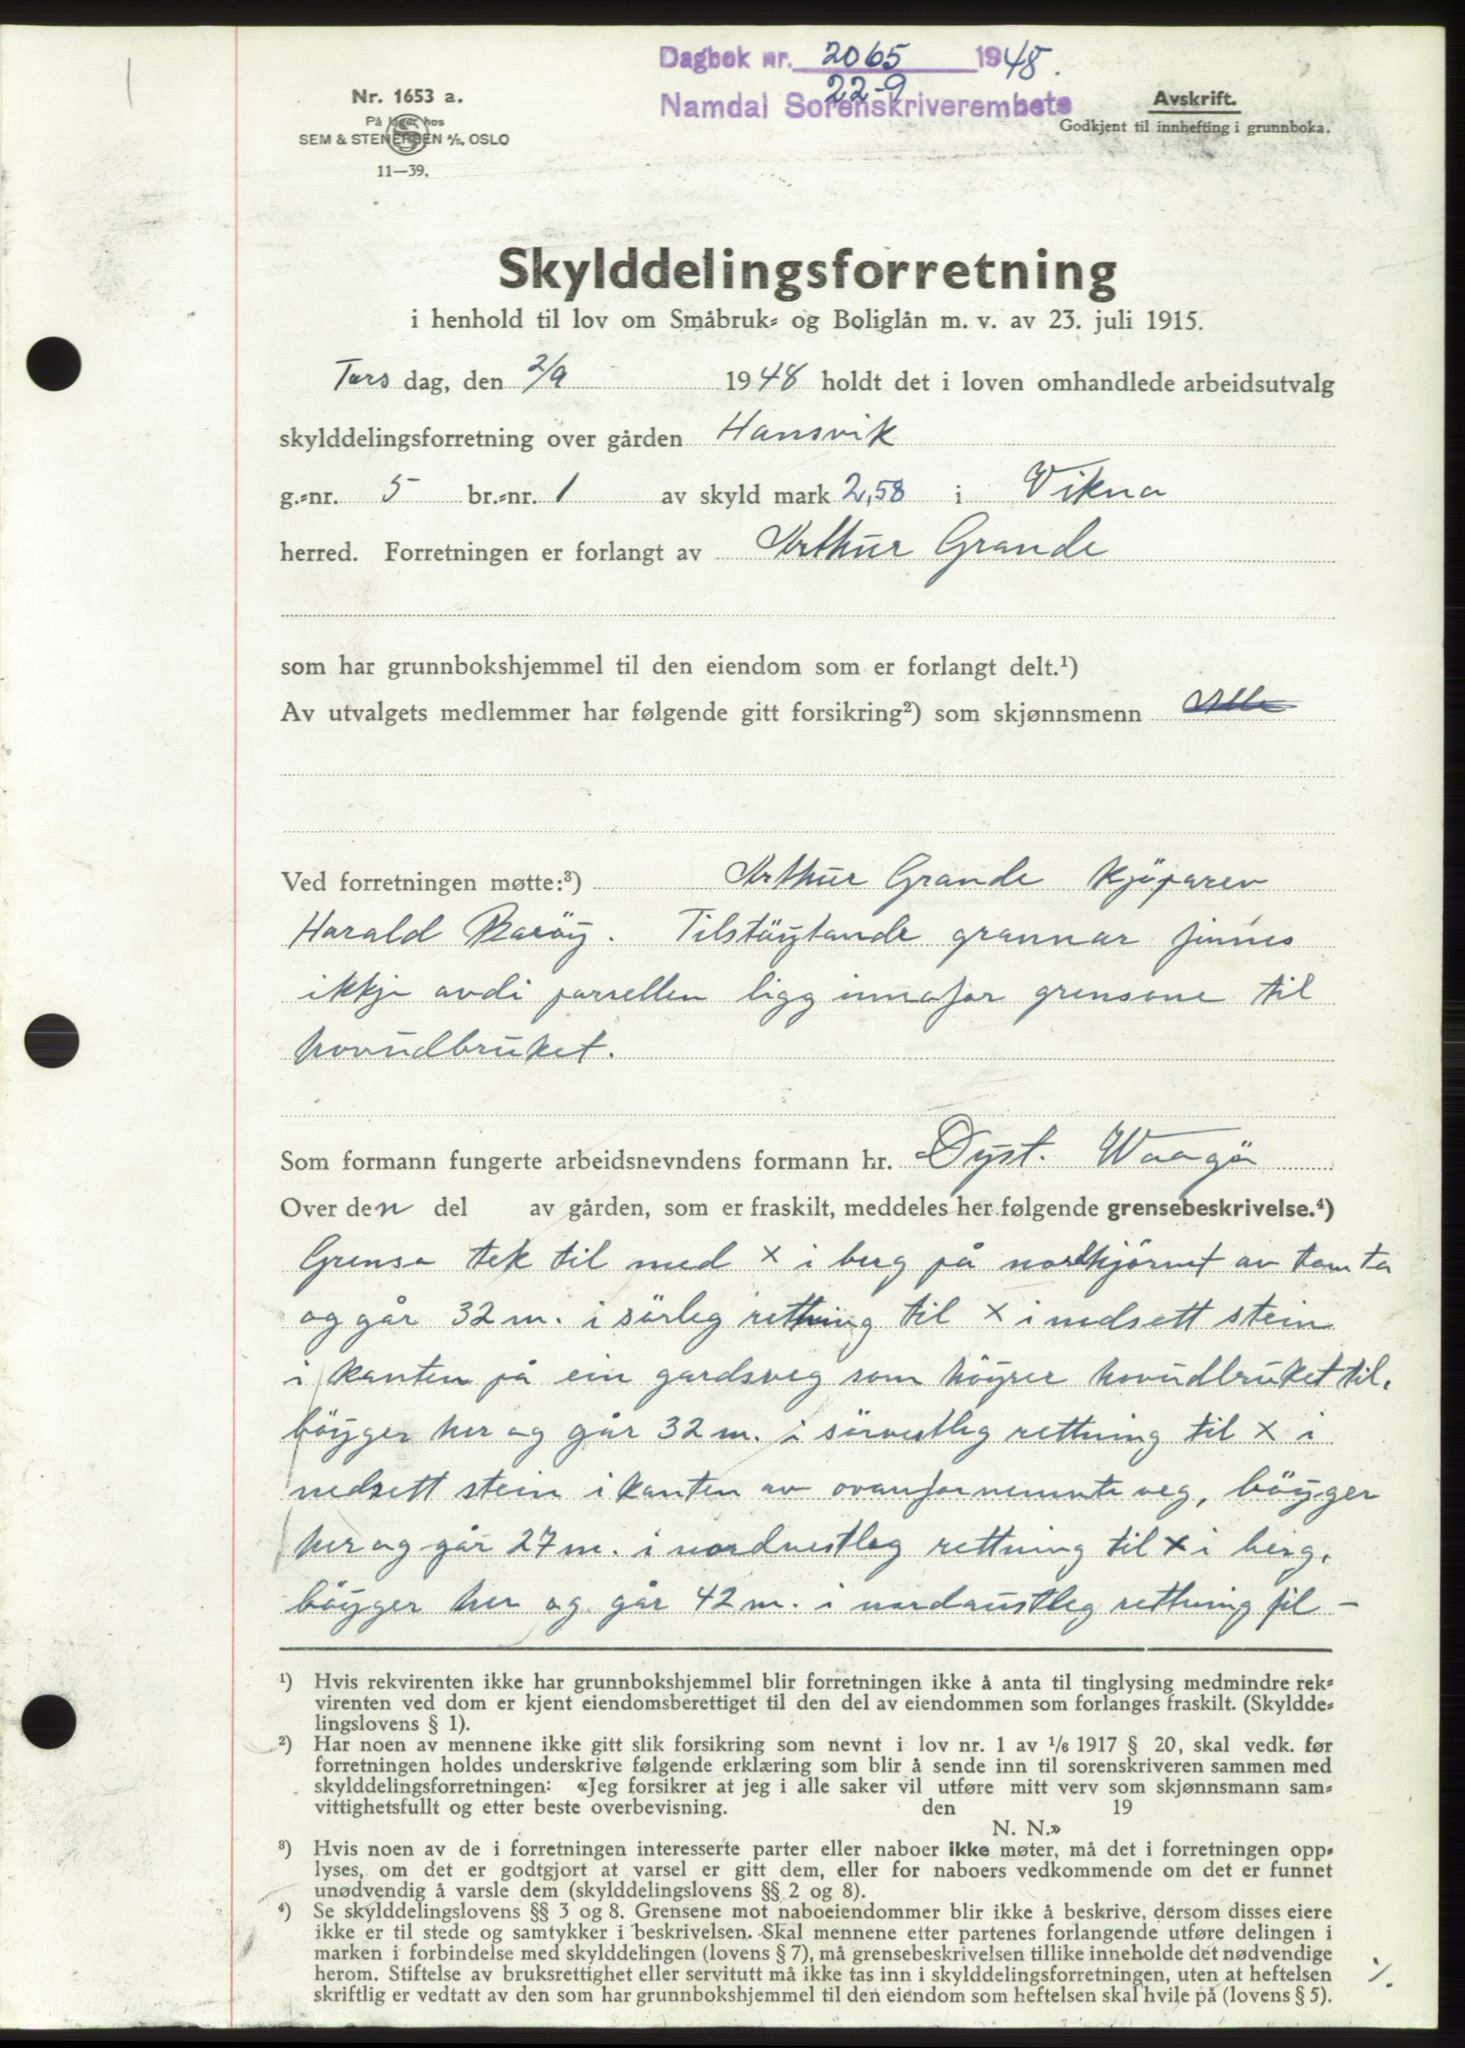 Dagbok nr. 2065 1948.
22-9
Namdal Sorenskriverembete
Nr. 1653 a.
På lager hos
SEM & STENERSEN A/S, OSLO
11—39.
Avskrift.
Godkjent til innhefting i grunnboka.
Skylddelingsforretning
i henhold til lov om Småbruk- og Boliglån m. v. av 23. juli 1915.
Tors dag, den 2/9 1948 holdt det i loven omhandlede arbeidsutvalg
skylddelingsforretning over gården Hansvik
g.-nr. 5 br.-nr. 1 av skyld mark 2,58 i Vikna
herred. Forretningen er forlangt av Arthur Grande
som har grunnbokshjemmel til den eiendom som er forlangt delt.¹)
Av utvalgets medlemmer har følgende gitt forsikring²) som skjønnsmenn
Ved forretningen møtte:³) Arthur Grande kjöparen
Harald Raröy. Tilstöytande grannar finnes
ikkje avdi parsellen ligg innafor grensene til
hovudbruket.
Som formann fungerte arbeidsnevndens formann hr. Dyst. Waagö
Over den del av gården, som er fraskilt, meddeles her følgende grensebeskrivelse.⁴)
Grensa tek til med x i berg på nordhjörnet av tomta
og går 32 m. i sörleg rettning til x i nedsett stein
i kanten på ein gardsveg som höyrer hovudbruket til.
böyger her og går 32 m. i sörvestleg rettning til x i
nedsett stein i kanten av ovanfornemnte veg, böyger
her og går 27 m. i nordvestleg rettning til x i berg,
böyger her og går 42 m. i nordaustleg rettning til —
¹) Hvis rekvirenten ikke har grunnbokshjemmel blir forretningen ikke å anta til tinglysing medmindre rek-
virenten ved dom er kjent eiendomsberettiget til den del av eiendommen som forlanges fraskilt. (Skyldde-
lingslovens § 1).
²) Har noen av mennene ikke gitt slik forsikring som nevnt i lov nr. 1 av 1/6 1917 § 20, skal vedk. før
forretningen holdes underskrive følgende erklæring som blir å sende inn til sorenskriveren sammen med
skylddelingsforretningen: «Jeg forsikrer at jeg i alle saker vil utføre mitt verv som skjønnsmann sam-
vittighetsfullt og etter beste overbevisning. den 19
N. N.»
³) Hvis noen av de i forretningen interesserte parter eller naboer ikke møter, må det i forretningen opp-
lyses, om det er godtgjort at varsel er gitt dem, eller for naboers vedkommende om det er funnet
unødvendig å varsle dem (skylddelingslovens §§ 2 og 8).
⁴) Se skylddelingslovens §§ 3 og 8. Grensene mot naboeiendommer blir ikke å beskrive, dersom disses eiere
ikke er til stede og samtykker i beskrivelsen. Skal mennene etter partenes forlangende utføre delingen i
marken i forbindelse med skylddelingen (lovens § 7), må grensebeskrivelsen tillike inneholde det nødvendige
herom. Stiftelse av bruksrettighet eller servitutt må ikke tas inn i skylddelingsforretningen, uten at heftelsen
skriftlig er vedtatt av den som har grunnbokshjemmel til den eiendom som heftelsen skal hvile på (lovens § 5).